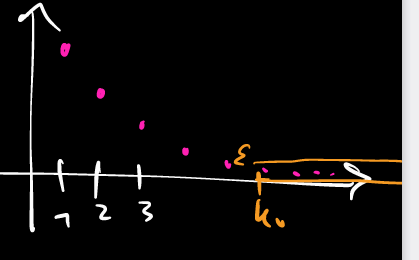 ε
1 2 3
k₀